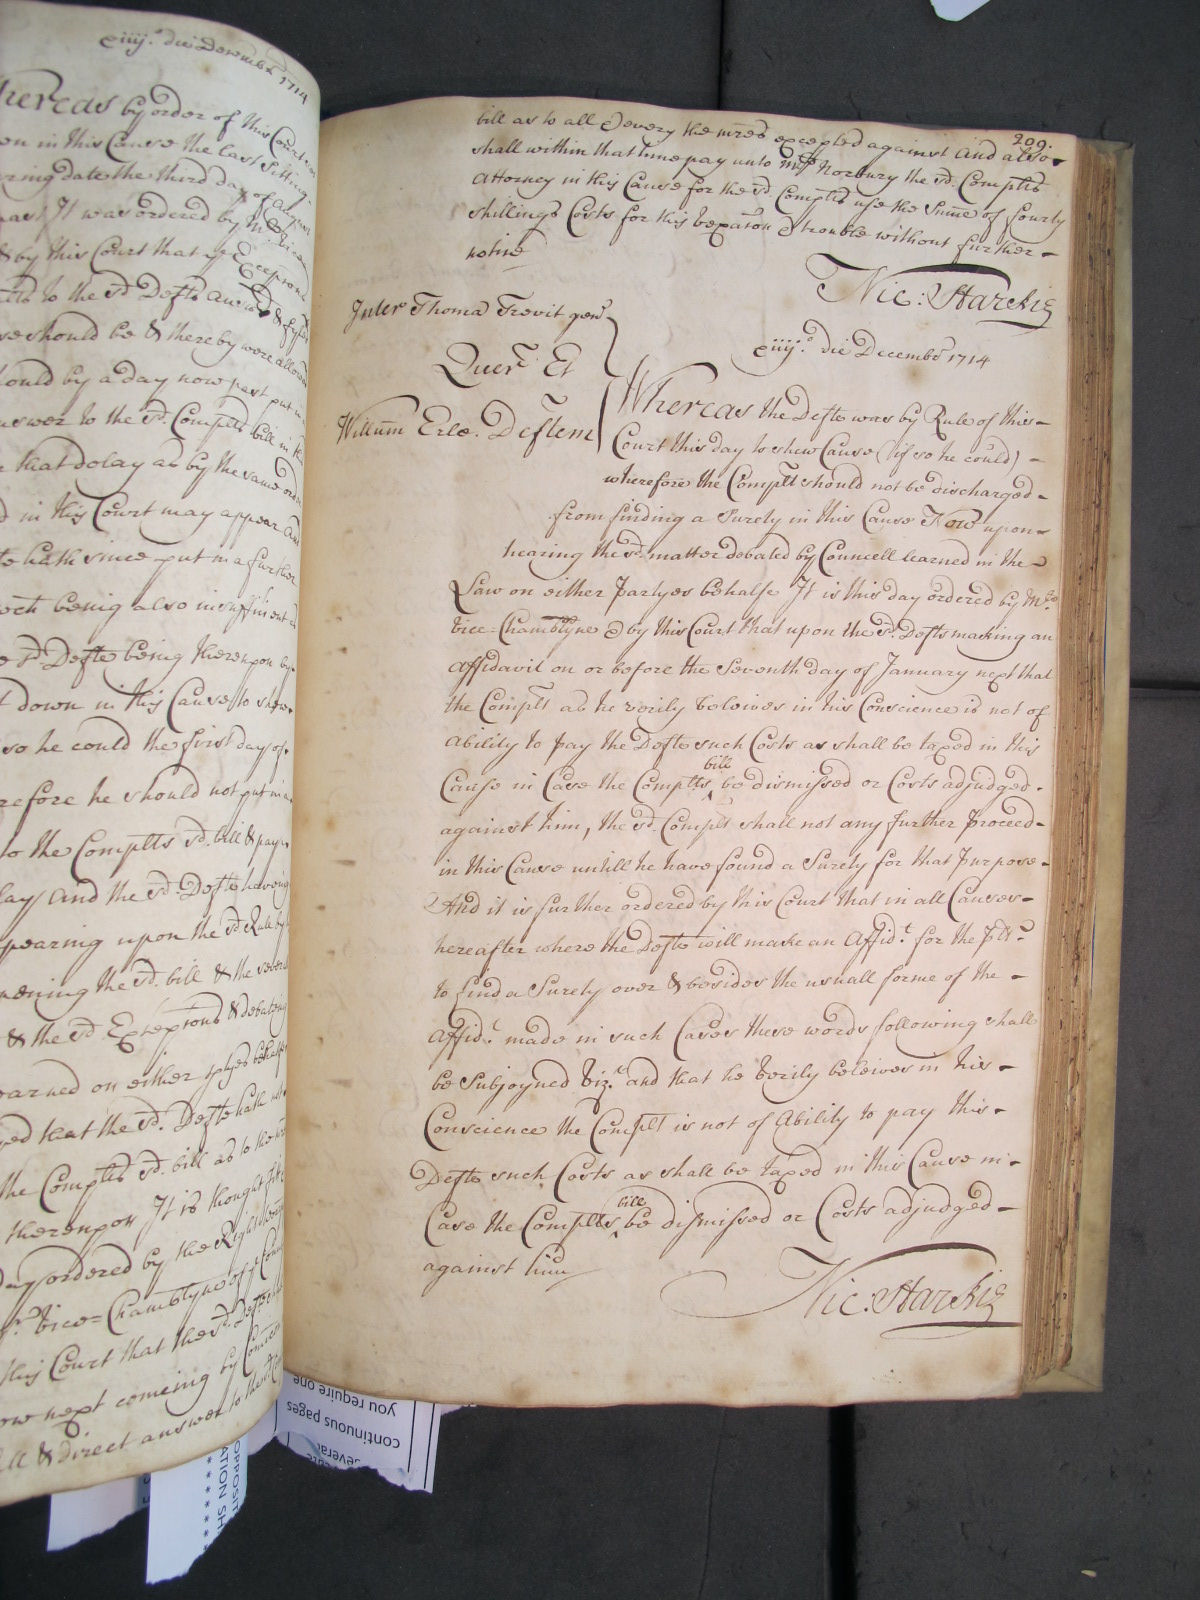 ciiij.o die Decembr 1714
Whereas by order of this Court
on in this Cause the last Sitting
ring date the third day of August
past It was ordered by Mr Vice
& by this Court that ye Excepcons
to the sd. Defts answer & fyled
should be & thereby were allowed
ould by a day now past put in
answer to the sd. Complts bill in this
that delay as by the same order
d in this Court may appear And
hath since put in a further
being also insufficient
sd. Defte being thereupon by
t down in this Cause to shew
so he could the first day of
refore he should not put in a
to the Complts sd. bill & pay
lay And the sd. Defte having
pearing upon the sd Rule by
the sd. bill & the severall
& the sd Excepcons & debating
earned on either ptyes behalfe
ed that the sd. Defte hath not
the Complts sd. bill as to the
thereupon It is thought fitt
Day ordered by the Right
Vice=Chambline of ye County
this Court that the sd. Defte
ow next comeing by
ll & direct answer to the sd.
209.
bill as to all & every the mres excepted against And also
shall within that time pay unto Mr Norbury the sd. Complts
Attorney in this Cause for the sd Complts use the Sume of fourty
shillings Costs for this vexacon & trouble without further
notice
Nic: Starkie
Inter Thoma Trevit gen
Quer Et
Willum Erle. Deftem
ciiij.o die Decembr 1714
Whereas the Defte was by Rule of this
Court this day to shew Cause (if so he could)
wherefore the Complt should not be discharged
from finding a Surety in this Cause Now upon
hearing the sd. matter debated by Councell learned in the
Law on either Partyes behalfe It is this day ordered by Mr.
Vice=Chamblyne & by this Court that upon the sd. Defts making an
Affidavit on or before the Seventh day of January next that
the Complt as he verily beleives in his Conscience is not of
Ability to pay the Defte such Costs as shall be taxed in this
Cause in Case the Complts bill be dismissed or Costs adjudged
against him, the sd. Complt shall not any further Proceed
in this Cause untill he have found a Surety for that Purpose
And it is further ordered by this Court that in all Causes
hereafter where the Defte will make an Affidt. for the Plt.
to find a Surety over & besides the usuall forme of the
Affidt. made in such Cases these words following shall
be Subjoyned Vizt. and that he Verily beleives in his
Conscience the Complt is not of Ability to pay this
Defte such Costs as shall be taxed in this Cause in
Case the Complts bill be dismissed or Costs adjudged
against him
Nic: Starkie
you require one
continuous pages
OPPOSIT
ATION SH